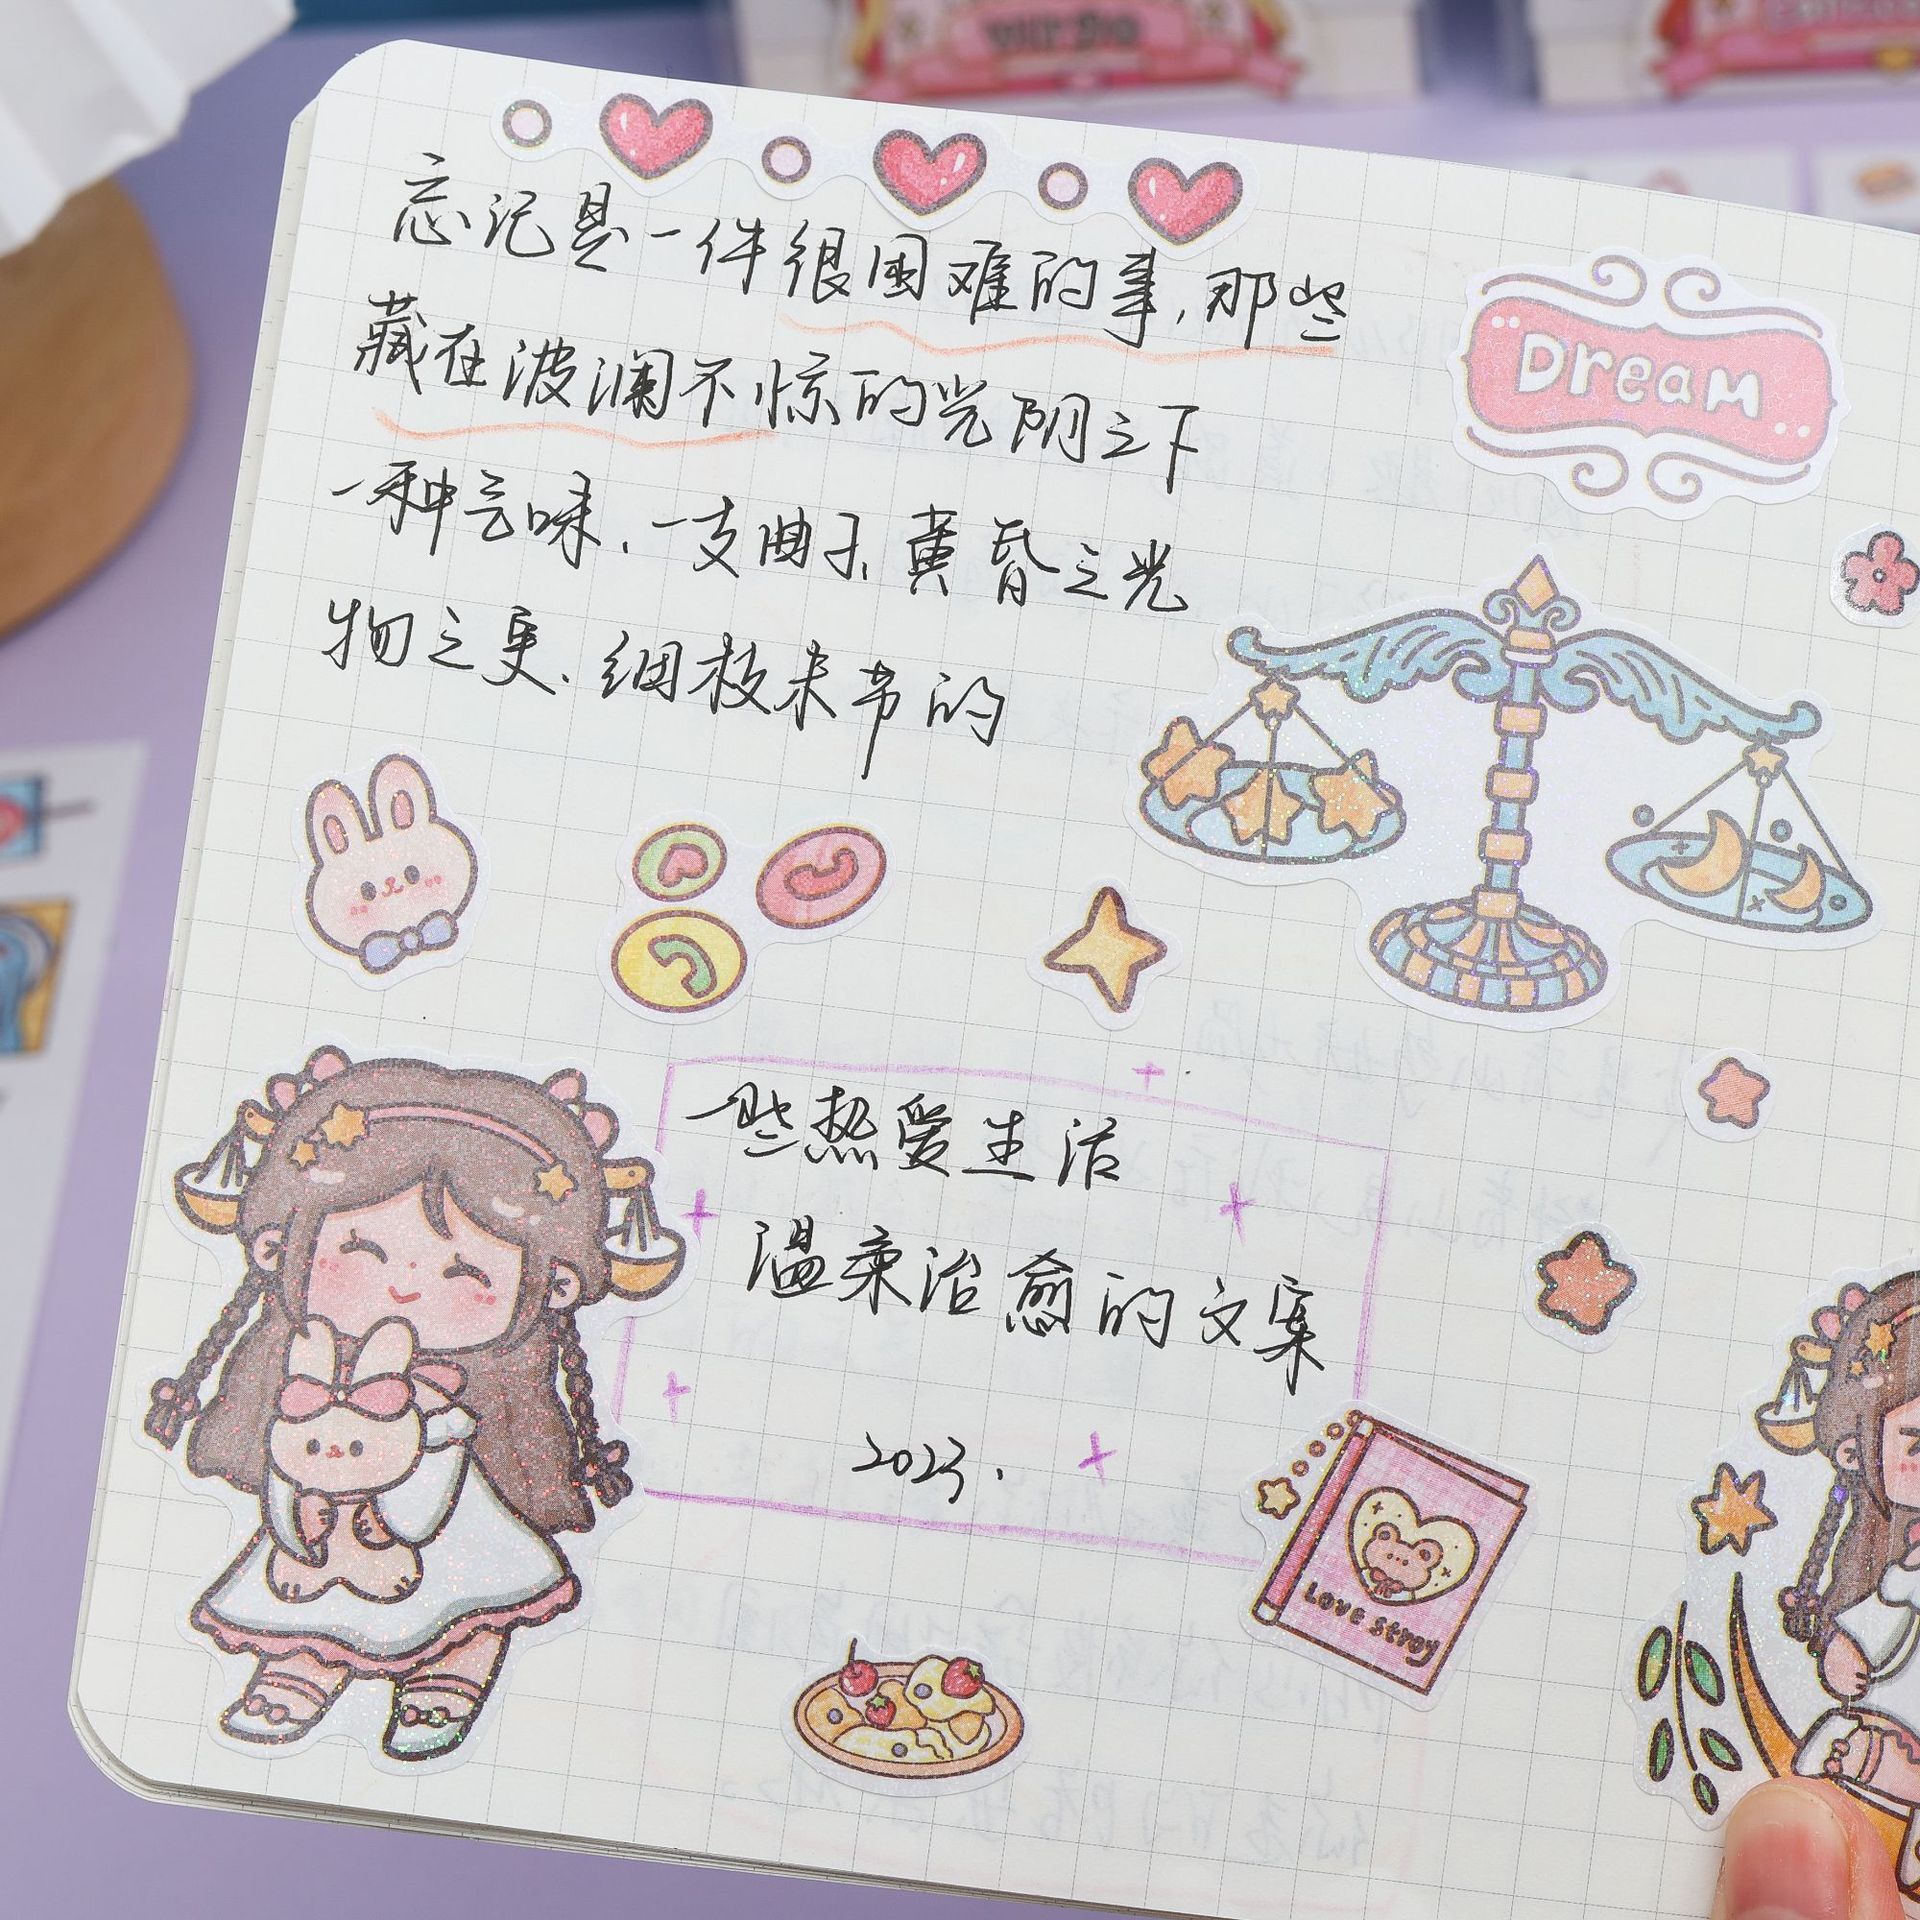 忘记是一件很困难的事,那些
藏在波澜不惊的光阴之下
一种气味、一支曲子,黄昏之光
物之更、细枝末节的
Dream
一些热爱生活
温柔治愈的文案
2023.
Love Stroy